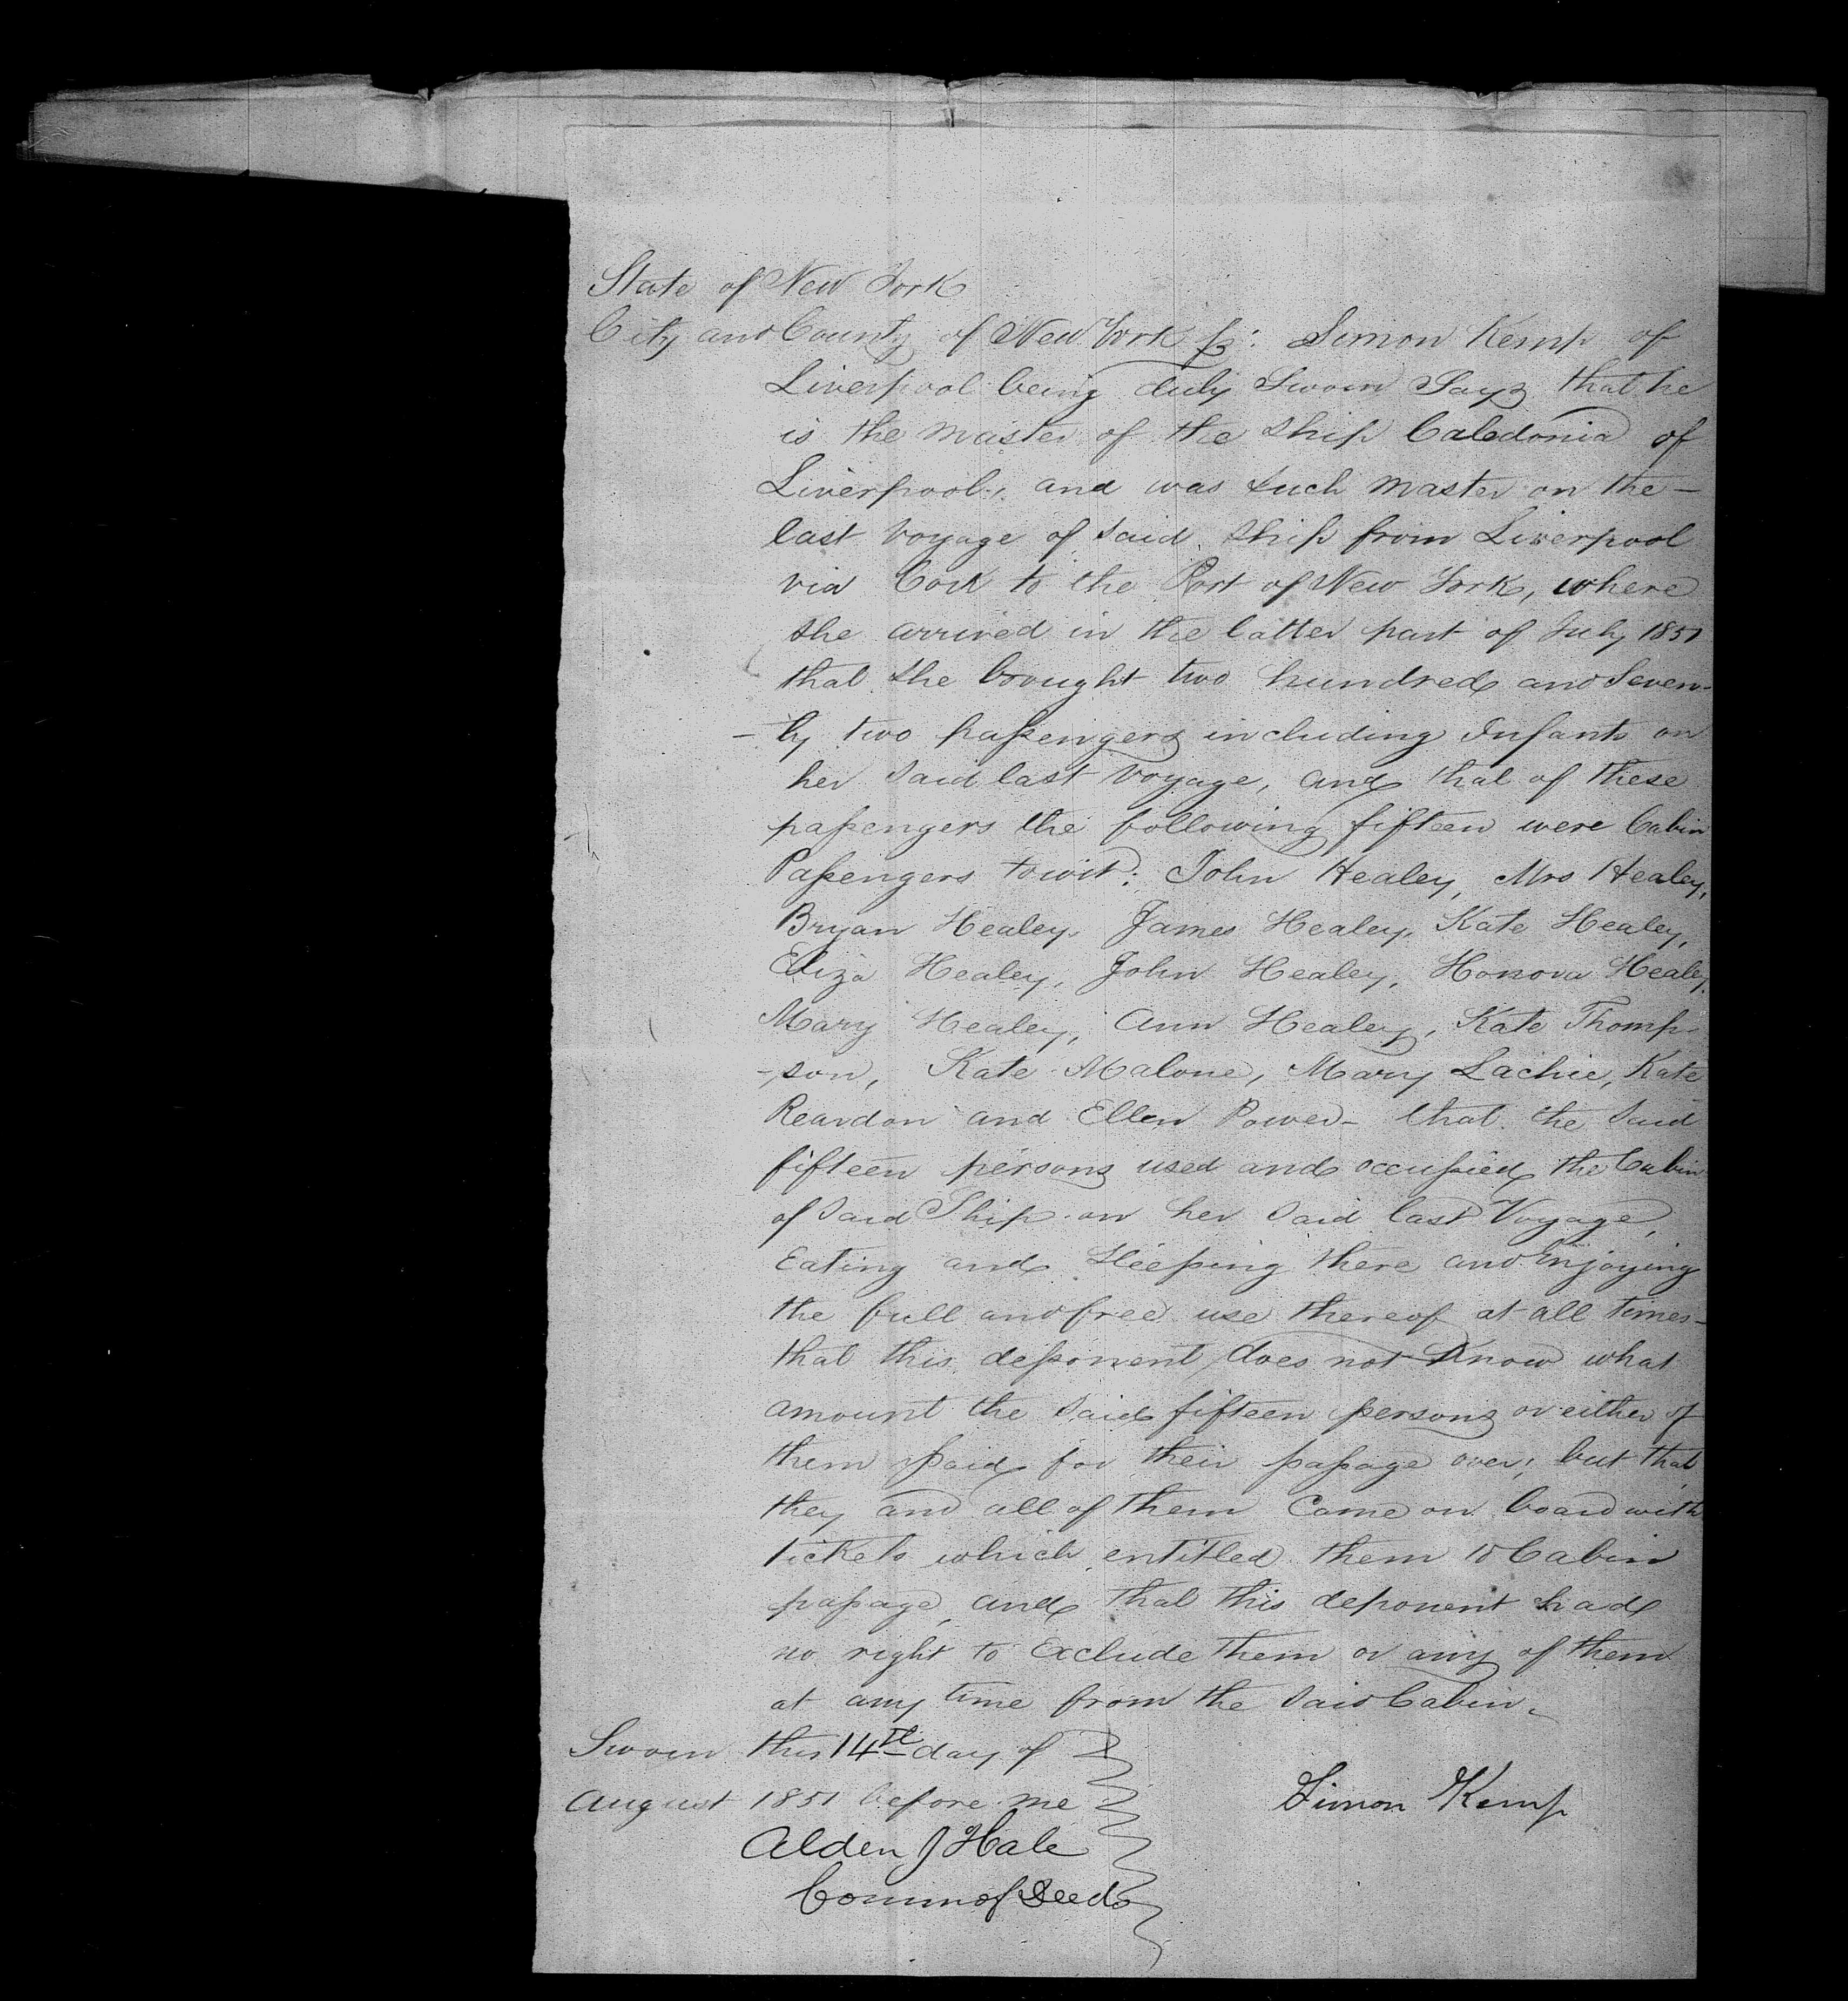 State of New York
City and County of New York ss: Simon Kemp of
Liverpool being duly Sworn Says that he
is the master of the Ship Caledonia of
Liverpool, and was such master on the —
last voyage of said ship from Liverpool
via Cork to the Port of New York, where
she arrived in the latter part of July 1851
that she brought two hundred and Seven-
-ty two passengers including Infants on
her said last voyage, and that of these
passengers the following fifteen were Cabin
Passengers towit: John Healey, Mrs Healey,
Bryan Healey, James Healey, Kate Healey,
Eliza Healey, John Healey, Honora Healey,
Mary Healey, Ann Healey, Kate Thomp-
-son, Kate Malone, Mary Lachie, Kate
Reardon and Ellen Power - that the said
fifteen persons used and occupied the Cabin
of said Ship on her said last Voyage,
Eating and Sleeping there and Enjoying
the full and free use thereof at all times -
that this deponent does not Know what
amount the said fifteen persons or either of
them paid for their passage over, but that
they and all of them Came on board with
tickets which entitled them to Cabin
passage, and that this deponent had
no right to Exclude them or any of them
at any time from the said Cabin.
Sworn this 14th day of
August 1851 before me
Simon Kemp
Alden J Hale
Comm of Deeds